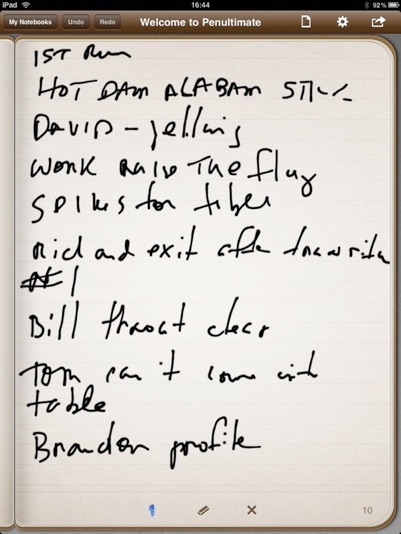 iPad
16:44
92%
My Notebooks
Undo
Redo
Welcome to Penultimate
1ST Run
HOT DAM ALABAM
DAVID - yelling
WORK The flag
SPIKES for tiber
and exit after
#1
Bill throat clear
Tom can't come with
table
Brandon profile
10